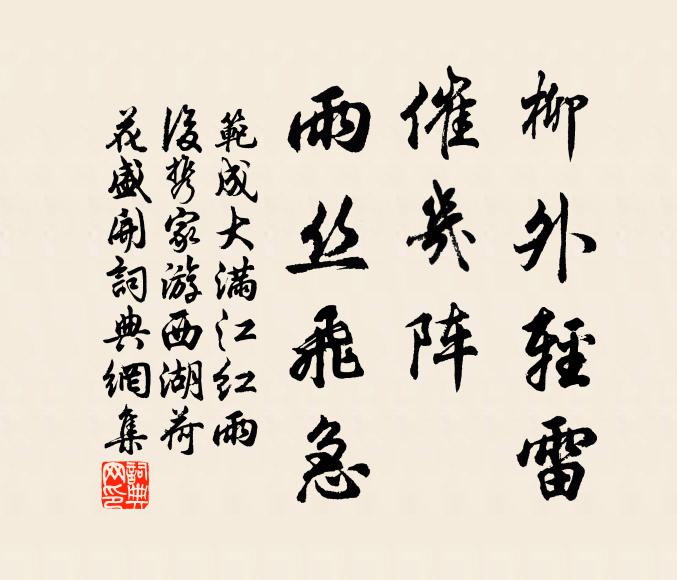 柳外輕雷
催幾阵
雨丝飛急
範成大满江红雨
後携家游西湖荷
花盛開詞典網集
詞典网印